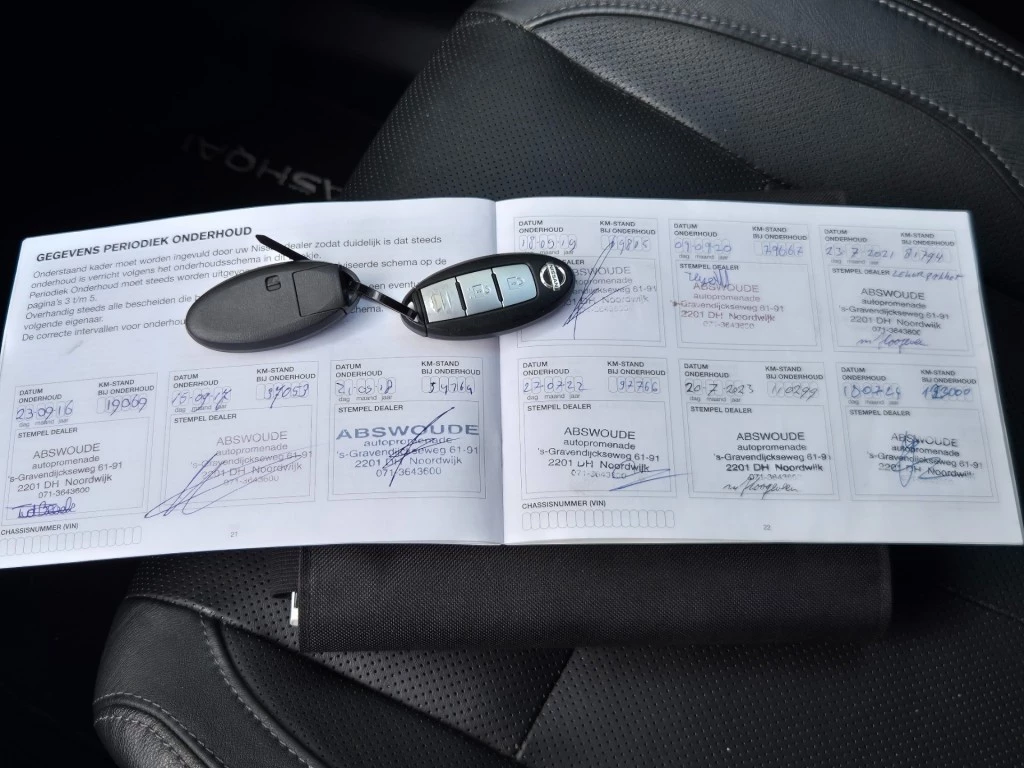 QASHQAI
GEGEVENS PERIODIEK ONDERHOUD
Onderstaand kader moet worden ingevuld door uw Nissan dealer zodat duidelijk is dat steeds
onderhoud is verricht volgens het onderhoudsschema in dit
Periodiek Onderhoud moet steeds worden uitgevoerd schema op de
pagina's 3 t/m 5.
Overhandig steeds alle bescheiden die
volgende eigenaar.
De correcte intervallen voor onderhoud schema.
DATUM ONDERHOUD KM-STAND BIJ ONDERHOUD
23-09-16 19069
dag maand jaar
STEMPEL DEALER
ABSWOUDE
autopromenade
's-Gravendijckseweg 61-91
2201 DH Noordwijk
071-3643600
DATUM ONDERHOUD KM-STAND BIJ ONDERHOUD
15-09-17 37053
dag maand jaar
STEMPEL DEALER
ABSWOUDE
autopromenade
's-Gravendijckseweg 61-91
2201 DH Noordwijk
071-3643600
DATUM ONDERHOUD KM-STAND BIJ ONDERHOUD
21-09-18
dag maand jaar
STEMPEL DEALER
ABSWOUDE
autopromenade
's-Gravendijckseweg 61-91
2201 DH Noordwijk
071-3643600
CHASSISNUMMER (VIN)
21
NISSAN
DATUM ONDERHOUD KM-STAND BIJ ONDERHOUD
18-09-19
dag maand jaar
STEMPEL DEALER
ABSWOUDE
autopromenade
's-Gravendijckseweg 61-91
2201 DH Noordwijk
071-3643600
DATUM ONDERHOUD KM-STAND BIJ ONDERHOUD
dag maand jaar
STEMPEL DEALER
ABSWOUDE
autopromenade
's-Gravendijckseweg 61-91
2201 DH Noordwijk
071-3643600
DATUM ONDERHOUD KM-STAND BIJ ONDERHOUD
23-7-2021 81794
dag maand jaar
STEMPEL DEALER
ABSWOUDE
autopromenade
's-Gravendijckseweg 61-91
2201 DH Noordwijk
071-3643600
DATUM ONDERHOUD KM-STAND BIJ ONDERHOUD
27-07-22 92766
dag maand jaar
STEMPEL DEALER
ABSWOUDE
autopromenade
's-Gravendijckseweg 61-91
2201 DH Noordwijk
071-3643600
DATUM ONDERHOUD KM-STAND BIJ ONDERHOUD
20-7-2023 110299
dag maand jaar
STEMPEL DEALER
ABSWOUDE
autopromenade
's-Gravendijckseweg 61-91
2201 DH Noordwijk
DATUM ONDERHOUD KM-STAND BIJ ONDERHOUD
dag maand jaar
STEMPEL DEALER
ABSWOUDE
autopromenade
's-Gravendijckseweg 61-91
2201 DH Noordwijk
CHASSISNUMMER (VIN)
22